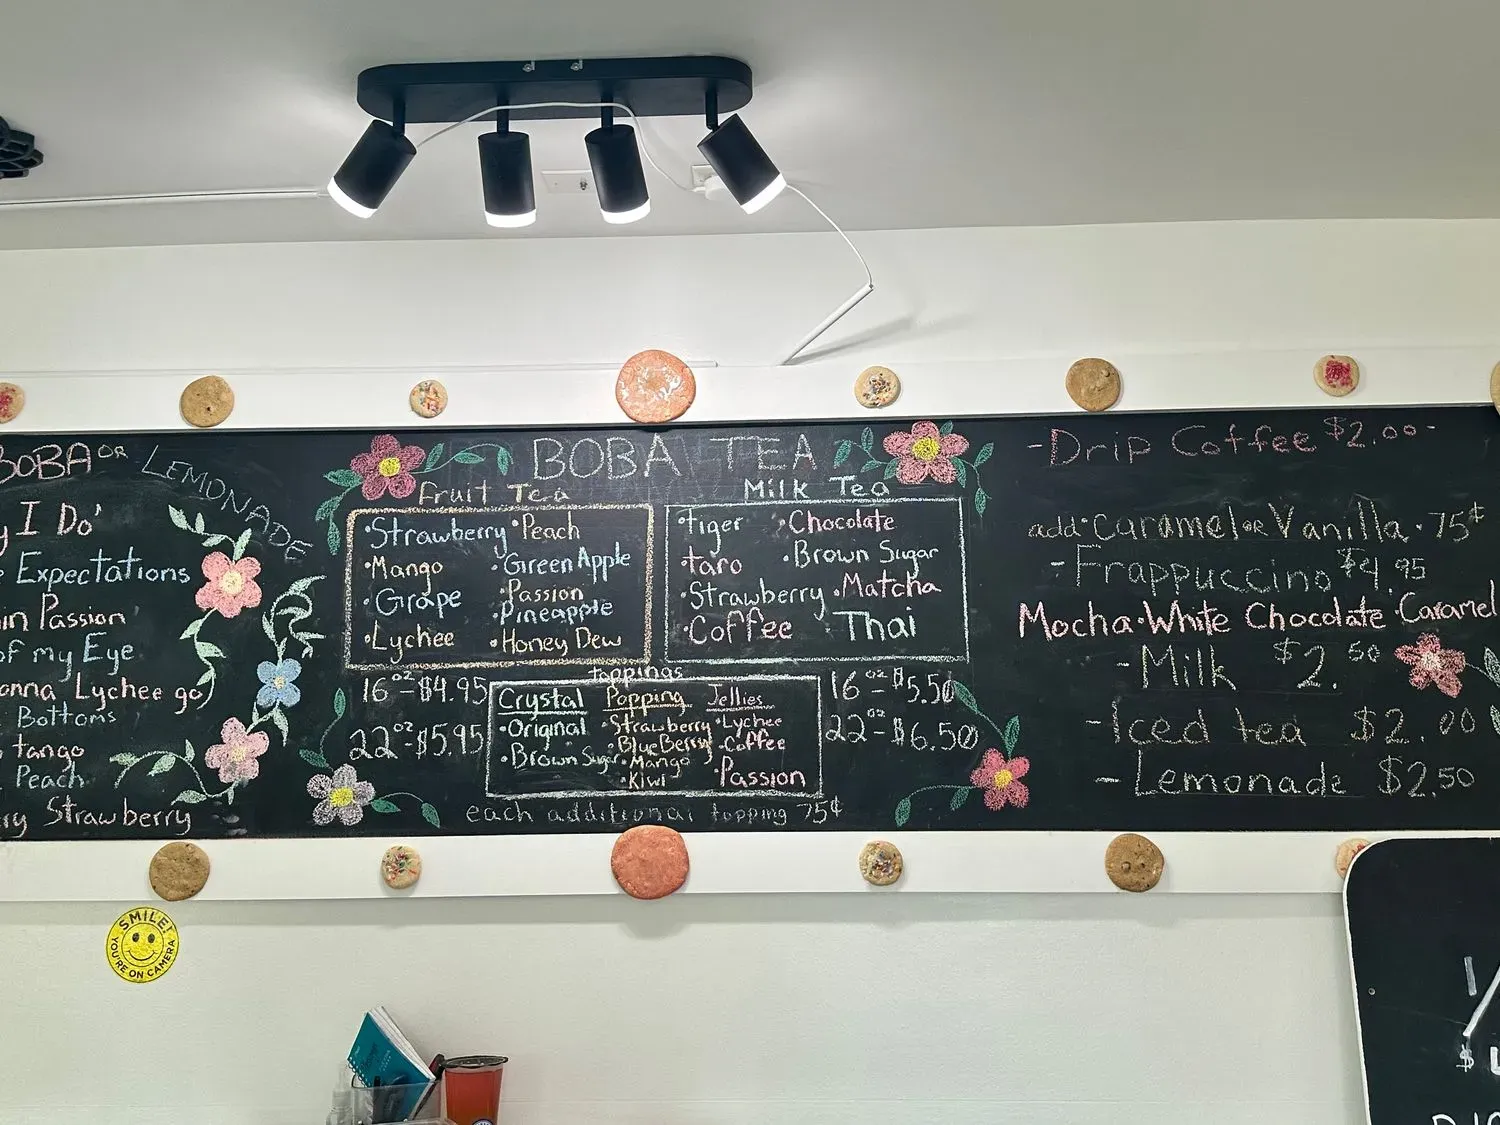 BOBA OR LEMONADE
I Do'
Expectations
in Passion
of my Eye
Lychee go)
Bottoms
tango
Peach
Strawberry
BOBA TEA
Fruit Tea
•Strawberry •Peach
•Mango •Green Apple
•Grape •Passion
•Pineapple
•Lychee •Honey Dew
16oz-$4.95
22oz-$5.95
Milk Tea
•tiger •Chocolate
•taro •Brown Sugar
•Strawberry •Matcha
•Coffee •Thai
16oz-$5.50
22oz-$6.50
toppings
Crystal Popping Jellies
•Original •Strawberry •Lychee
•Brown Sugar •BlueBerry •Coffee
•Mango
•Kiwi •Passion
each additional topping 75¢
-Drip Coffee $2.00-
add•Caramel or Vanilla•75¢
-Frappuccino $4.95
Mocha•White Chocolate•Caramel
-Milk $2.50
-Iced tea $2.00
-Lemonade $2.50
SMILE!
YOU'RE ON CAMERA